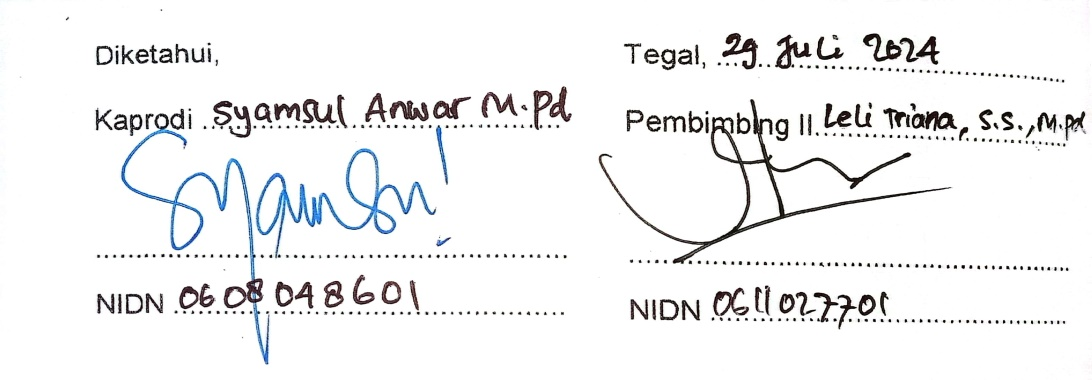 Diketahui,
Kaprodi Syamsul Anwar M.Pd
NIDN 0608048601
Tegal, 29 Juli 2024
Pembimbing II Leli Triana, S.S., M.Pd
NIDN 0611027701